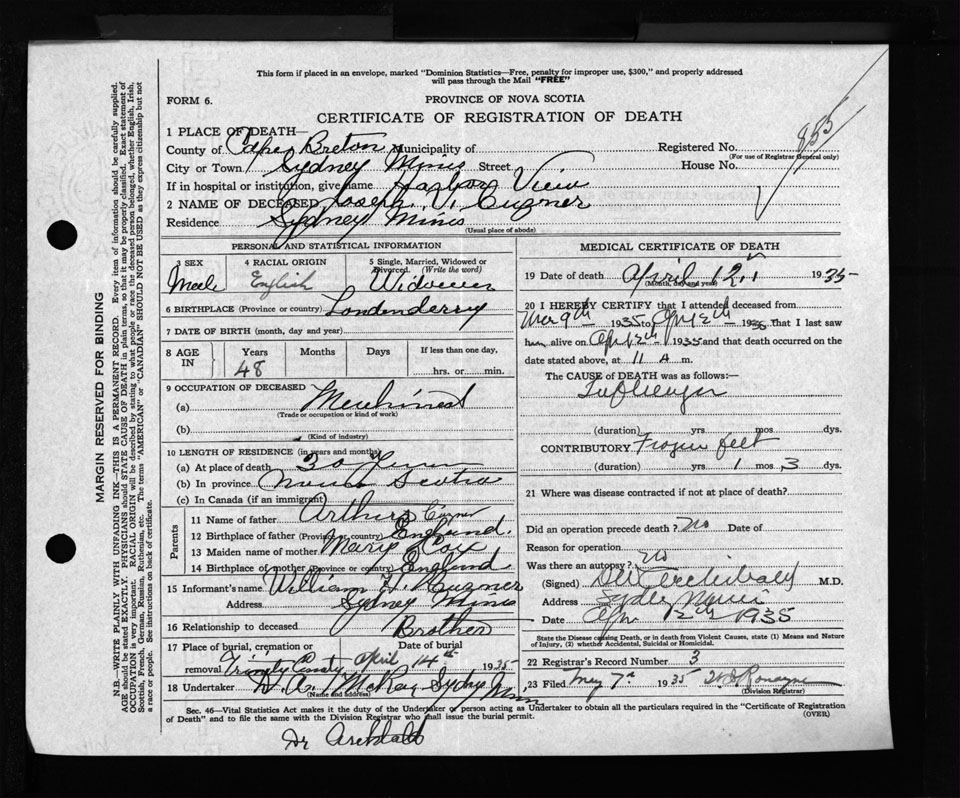 This form if placed in an envelope, marked "Dominion Statistics—Free, penalty for improper use, $300," and properly addressed
will pass through the Mail "FREE"
FORM 6.
PROVINCE OF NOVA SCOTIA
CERTIFICATE OF REGISTRATION OF DEATH
855
1 PLACE OF DEATH—
County of Cape Breton Municipality of Registered No.
(For use of Registrar General only)
City or Town Sydney Mines Street House No.
If in hospital or institution, give name Harbor View
2 NAME OF DECEASED Joseph V. Cuzner
Residence Sydney Mines
(Usual place of abode)
PERSONAL AND STATISTICAL INFORMATION
3 SEX 4 RACIAL ORIGIN 5 Single, Married, Widowed or Divorced. (Write the word)
Male English Widower
6 BIRTHPLACE (Province or country) Londonderry
7 DATE OF BIRTH (month, day and year)
8 AGE IN Years Months Days If less than one day,
48 hrs. or min.
9 OCCUPATION OF DECEASED
(a) Machinest
(Trade or occupation or kind of work)
(b)
(Kind of industry)
10 LENGTH OF RESIDENCE (in years and months)
(a) At place of death 30 Years
(b) In province Nova Scotia
(c) In Canada (if an immigrant)
Parents
11 Name of father Arthur Cuzner
12 Birthplace of father (Province or country) England
13 Maiden name of mother Mary Cox
14 Birthplace of mother (Province or country) England
15 Informant's name William H. Cuzner
Address Sydney Mines
16 Relationship to deceased Brother
17 Place of burial, cremation or removal Date of burial
Trinity Cemty April 14th 1935
18 Undertaker D. A. McKay Sydney Mines
(Name and address)
MEDICAL CERTIFICATE OF DEATH
19 Date of death April 12th 1935
(Month, day and year)
20 I HEREBY CERTIFY that I attended deceased from
Mar 9th 1935 to Apr 12th 1935 that I last saw
him alive on Apr 12th 1935 and that death occurred on
date stated above, at 11 A m.
The CAUSE of DEATH was as follows:—
Influenza
(duration) yrs mos dys.
CONTRIBUTORY Frozen feet
(duration) yrs 1 mos 3 dys.
21 Where was disease contracted if not at place of death?
Did an operation precede death? No Date of
Reason for operation
Was there an autopsy? No
(Signed) Archibald M.D.
Address Sydney Mines
Date Apr 12th 1935
State the Disease causing Death, or in death from Violent Causes, state (1) Means and Nature
of Injury, (2) whether Accidental, Suicidal or Homicidal.
22 Registrar's Record Number 3
23 Filed May 7th 1935
(Division Registrar)
Sec. 46—Vital Statistics Act makes it the duty of the Undertaker or person acting as Undertaker to obtain all the particulars required in the "Certificate of Registration
of Death" and to file the same with the Division Registrar who shall issue the burial permit.
(OVER)
Dr Archibald
MARGIN RESERVED FOR BINDING
N.B.—WRITE PLAINLY WITH UNFADING INK—THIS IS A PERMANENT RECORD. Every item of information should be carefully supplied.
AGE should be stated EXACTLY. PHYSICIANS should STATE CAUSE OF DEATH in plain terms, so that it may be properly classified. Exact statement of
OCCUPATION is very important. RACIAL ORIGIN will be described by stating to what people or race the deceased person belonged, whether English, Irish,
Scottish, French, German, Russian, Ruthenian, etc. The terms "AMERICAN" or "CANADIAN" SHOULD NOT BE USED as they express citizenship but not
a race or people. See instructions on back of certificate.